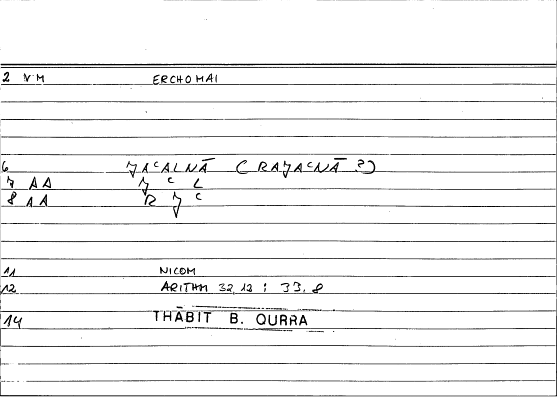 2 VM ERCHOMAI
6 JAcALNĀ (RAJAcNĀ ?)
7 AA J c L
8 AA R J c
11 NICOM
12 ARITHM 32,12 ; 33,8
14 THĀBIT B. QURRA